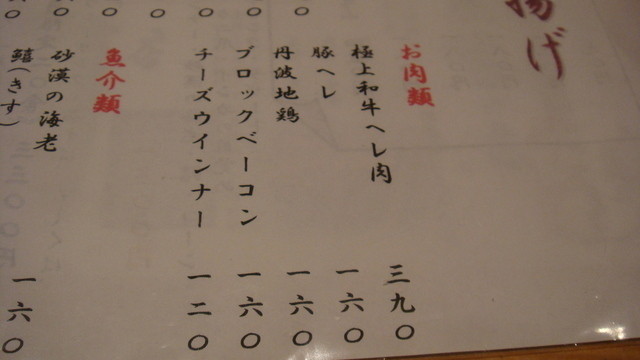 揚げ
お肉類
極上和牛ヘレ肉 三九〇
豚ヘレ 一六〇
丹波地鶏 一六〇
ブロックベーコン 一六〇
チーズウインナー 一二〇
魚介類
砂漠の海老
鱚(きす) 一六〇